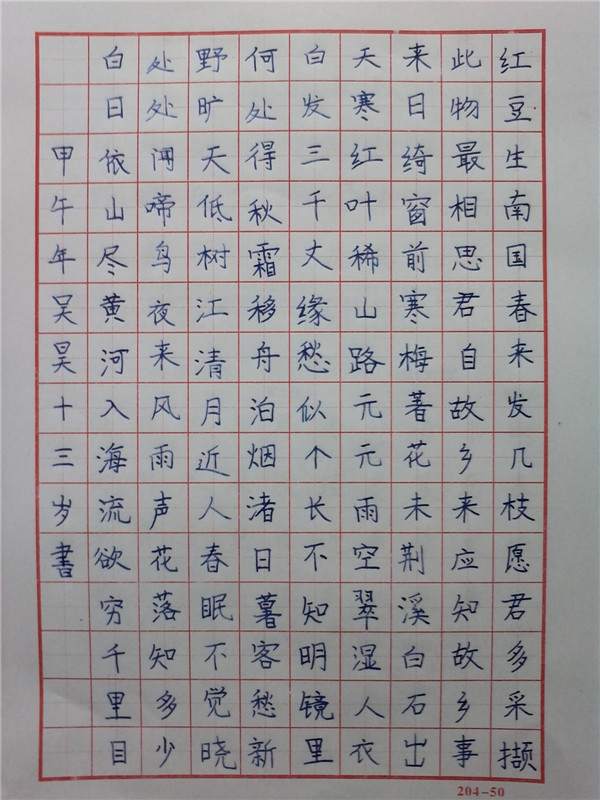 红豆生南国春来发几枝愿君多采撷
此物最相思君自故乡来应知故乡事
来日绮窗前寒梅著花未荆溪白石出
天寒红叶稀山路元元雨空翠湿人衣
白发三千丈缘愁似个长不知明镜里
何处得秋霜移舟泊烟渚日暮客愁新
野旷天低树江清月近人春眠不觉晓
处处闻啼鸟夜来风雨声花落知多少
白日依山尽黄河入海流欲穷千里目
甲午年吴昊十三岁书
204-50